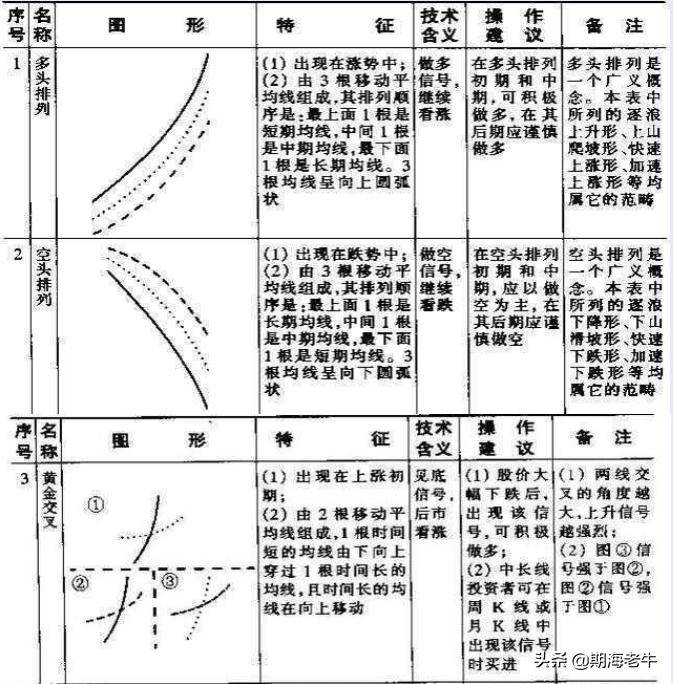 序号 名称 图 形 特 征 技术含义 操作建议 备注
1
多头排列
(1) 出现在涨势中；
(2) 由3根移动平
均线组成，其排列顺
序是：最上面1根是
短期均线，中间1根
是中期均线，最下面
1根是长期均线。3
根均线呈向上圆弧
状
做多
信号，
继续
看涨
在多头排列
初期和中
期，可积极
做多，在其
后期应谨慎
做多
多头排列是
一个广义概
念。本表中
所列的逐浪
上升形、上山
爬坡形、快速
上涨形、加速
上涨形等均
属它的范畴
2
空头排列
(1) 出现在跌势中；
(2) 由3根移动平
均线组成，其排列顺
序是：最上面1根是
长期均线，中间1根
是中期均线，最下面
1根是短期均线。3
根均线呈向下圆弧
状
做空
信号，
继续
看跌
在空头排列
初期和中
期，应以做
空为主，在
其后期应谨
慎做空
空头排列是
一个广义概
念。本表中
所列的逐浪
下降形、下山
滑坡形、快速
下跌形、加速
下跌形等均
属它的范畴
序号 名称 图 形 特 征 技术含义 操作建议 备注
3
黄金交叉
①
②
③
(1) 出现在上涨初
期；
(2) 由2根移动平
均线组成，1根时间
短的均线由下向上
穿过1根时间长的
均线，且时间长的均
线在向上移动
见底
信号，
后市
看涨
(1) 股价大
幅下跌后，
出现该信
号，可积极
做多；
(2) 中长线
投资者可在
周K线或
月K线中
出现该信号
时买进
(1) 两线交
叉的角度越
大，上升信号
越强烈；
(2) 图③信
号强于图②，
图②信号强
于图①
头条 @期海老牛